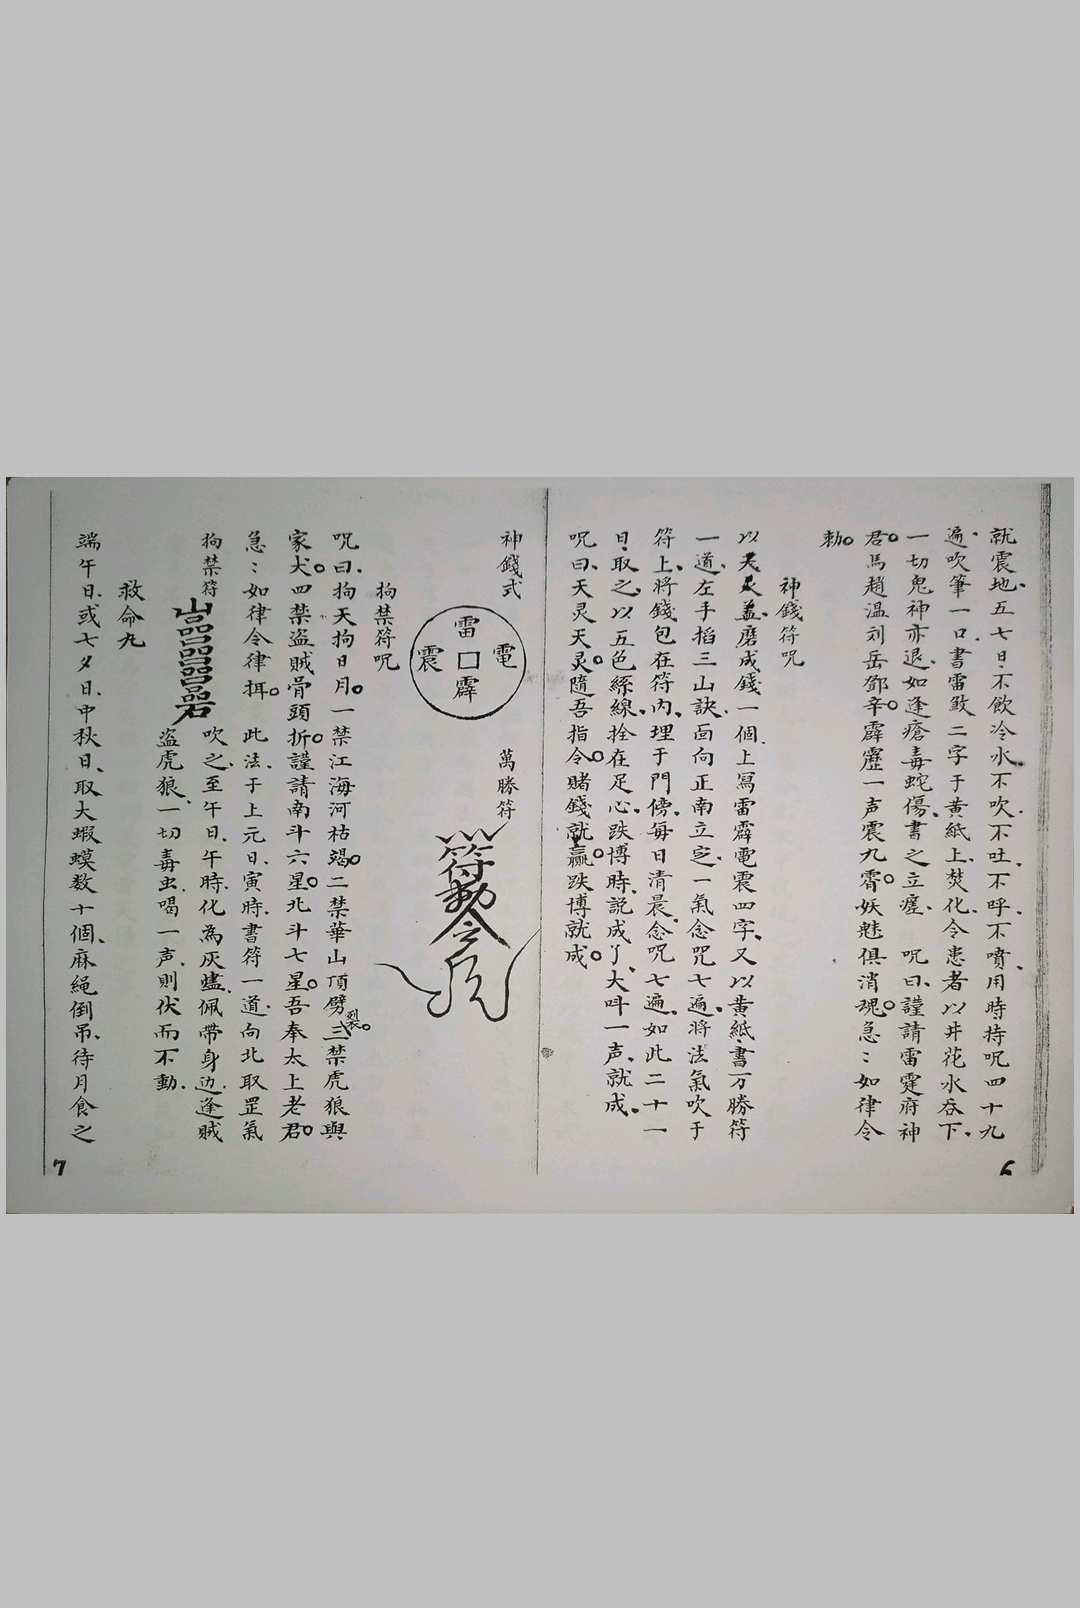 就震地、五七日、不飲冷水、不吹、不吐、不呼、不噴、用時持呪四十九
遍、吹筆一口、書雷敕二字于黃紙上、焚化、令患者以井花水吞下、
一切鬼神亦退、如逢瘡毒蛇傷、書之立瘥、 呪曰、謹請雷霆府神
君。馬趙温刘岳鄧辛。霹靂一声震九霄。妖魅俱消魂。急〻如律令
勅。
神錢符呪
以天灵盖、磨成錢一個、上寫雷霹電震四字、又以黃紙書万勝符
一道、左手掐三山訣、面向正南立定、一氣念咒七遍、將法氣吹于
符上、將錢包在符內、埋于門傍、每日清晨、念呪七遍、如此二十一
日、取之、以五色絲線、拴在足心、跌博時、説成了、大呌一声、就成、
呪曰、天灵天灵。隨吾指令。賭錢就贏。跌博就成。
6
神錢式
雷 電 震 霹
萬勝符
符勅令
拘禁符呪
呪曰、拘天拘日月。一禁江海河枯竭。二禁華山頂劈裂。三禁虎狼與
家犬。四禁盗賊骨頭折。謹請南斗六星。北斗七星。吾奉太上老君。
急〻如律令律挕。 此法、于上元日、寅時、書符一道、向北取罡氣
拘禁符 吹之、至午日、午時、化為灰燼、佩帶身边、逢賊
盗虎狼、一切毒虫、喝一声、則伏而不動、
救命九
端午日、或七夕日、中秋日、取大蝦蟆数十個、麻繩倒吊、待月食之
7